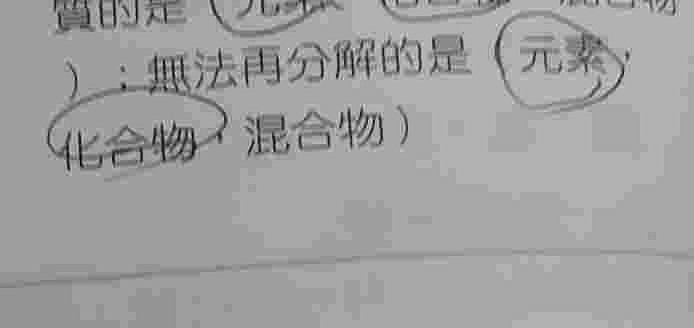 質的是（元素、化合物、混合物
）；無法再分解的是（元素，
化合物，混合物）